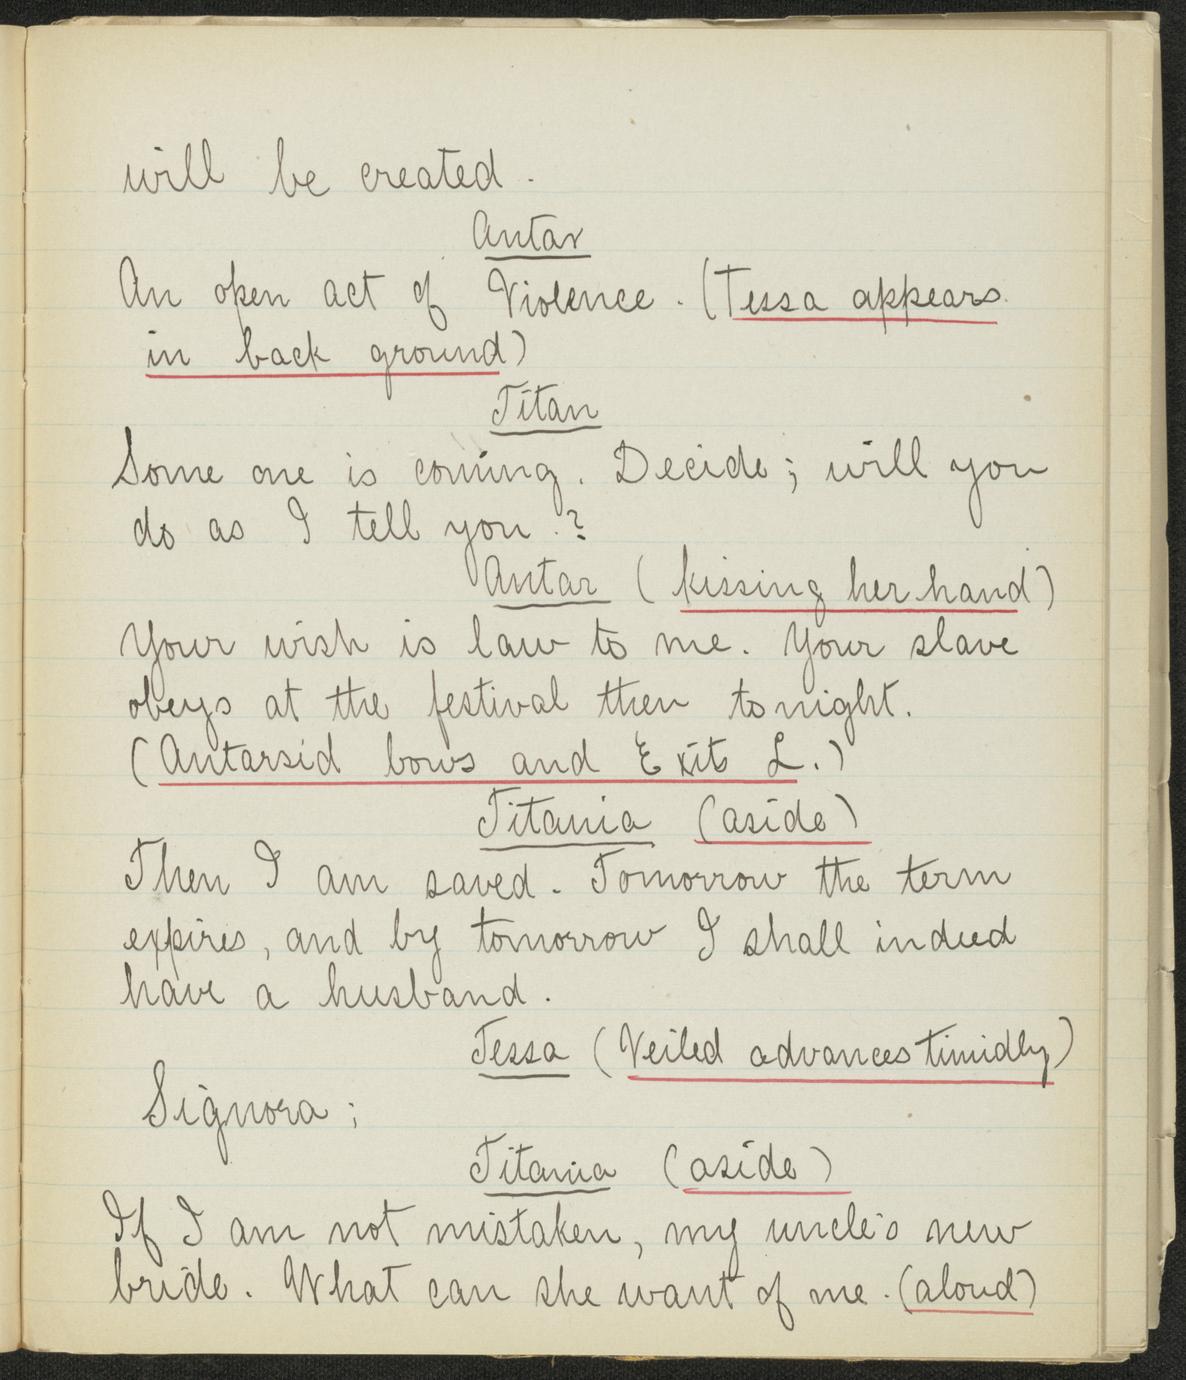 will be created.
Antar
An open act of Violence. (Tessa appears
in back ground)
Titan
Some one is coming. Decide; will you
do as I tell you.?
Antar (kissing her hand)
Your wish is law to me. Your slave
obeys at the festival then tonight.
(Antarsid bows and Exits L.)
Titania (aside)
Then I am saved. Tomorrow the term
expires, and by tomorrow I shall indeed
have a husband.
Tessa (Veiled advances timidly)
Signora;
Titania (aside)
If I am not mistaken, my uncle's new
bride. What can she want of me. (aloud)